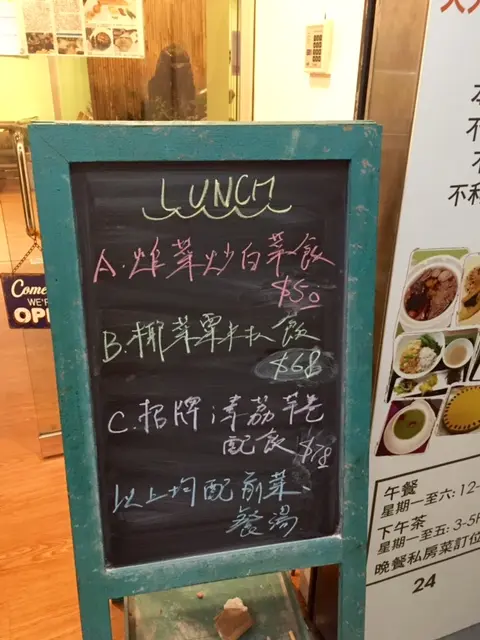 LUNCH
A.炸菜炒白菜飯
$50
B.椰菜粟米扒飯
$68
C.招牌
配飯 $78
以上均配前菜、
餐湯
Come
WE'R
OP
不
不利
午餐
星期一至六: 12-
下午茶
星期一至五: 3-5
晚餐私房菜訂位
24